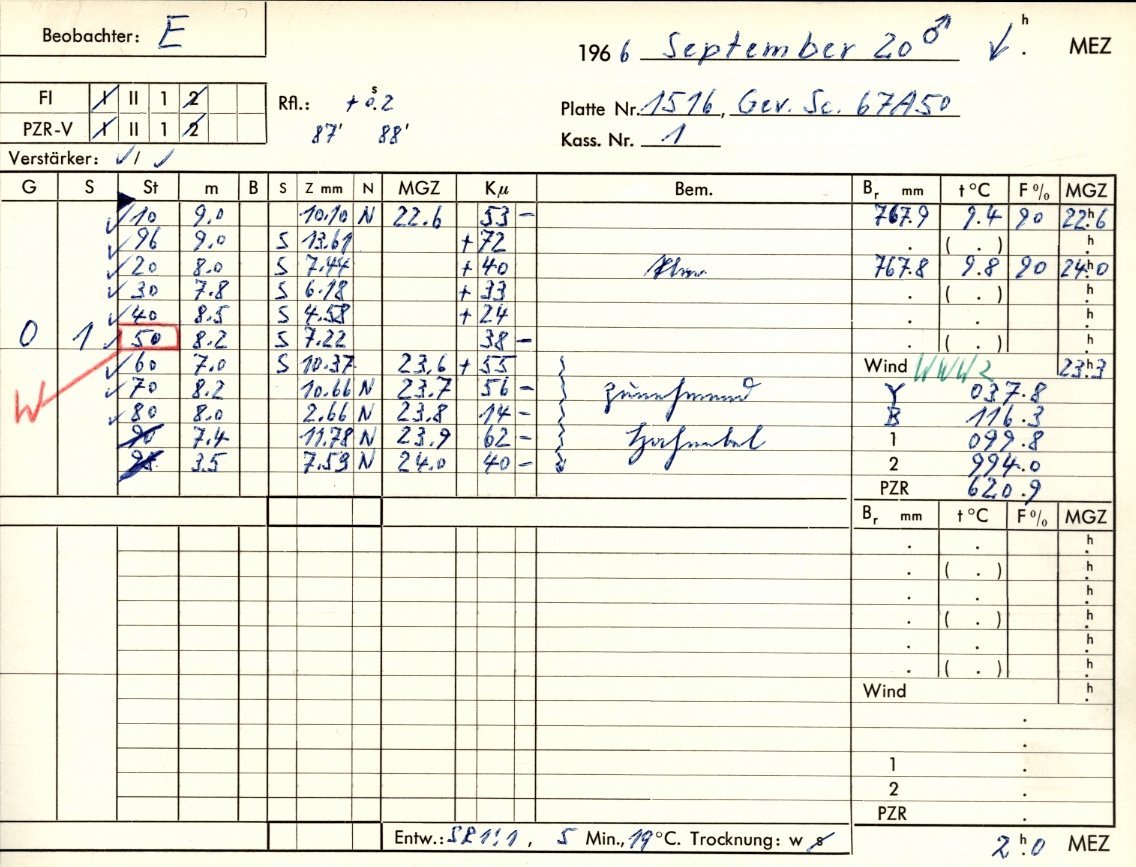 Beobachter: E
1966 September 20 ♂ h . MEZ
FI I II 1 2
Rfl.: + 0.2 s
Platte Nr. 1516, Gev. Sc. 67A50
PZR-V I II 1 2
87' 88'
Kass. Nr. 1
Verstärker: ✓/ ✓
G S St m B S Z mm N MGZ Kμ Bem. Br mm t °C F % MGZ
✓ 10 9.0 10.10 N 22.6 53 – 767.9 9.4 90 22h6
✓ 96 9.0 S 13.61 + 72 . ( . ) h
✓ 20 8.0 S 7.44 + 40 767.8 9.8 90 24h0
✓ 30 7.8 S 6.18 + 33 . ( . ) h
✓ 40 8.5 S 4.58 + 24 . . h
0 1 ✓ 50 8.2 S 7.22 38 – . ( . ) h
✓ 60 7.0 S 10.37 23.6 + 55 Wind WWW 2 23h3
W ✓ 70 8.2 10.66 N 23.7 56 – zunehmend Y 037.8
✓ 80 8.0 2.66 N 23.8 14 – B 116.3
90 7.4 11.78 N 23.9 62 – Hochnebel 1 099.8
3.5 7.59 N 24.0 40 – 2 994.0
PZR 620.9
Br mm t °C F % MGZ
. . h
. ( . ) h
. . h
. ( . ) h
. . h
. ( . ) h
Wind h
.
.
1 .
2 .
PZR .
Entw.: 1:1, 5 Min., 19 °C. Trocknung: w s 2h.0 MEZ